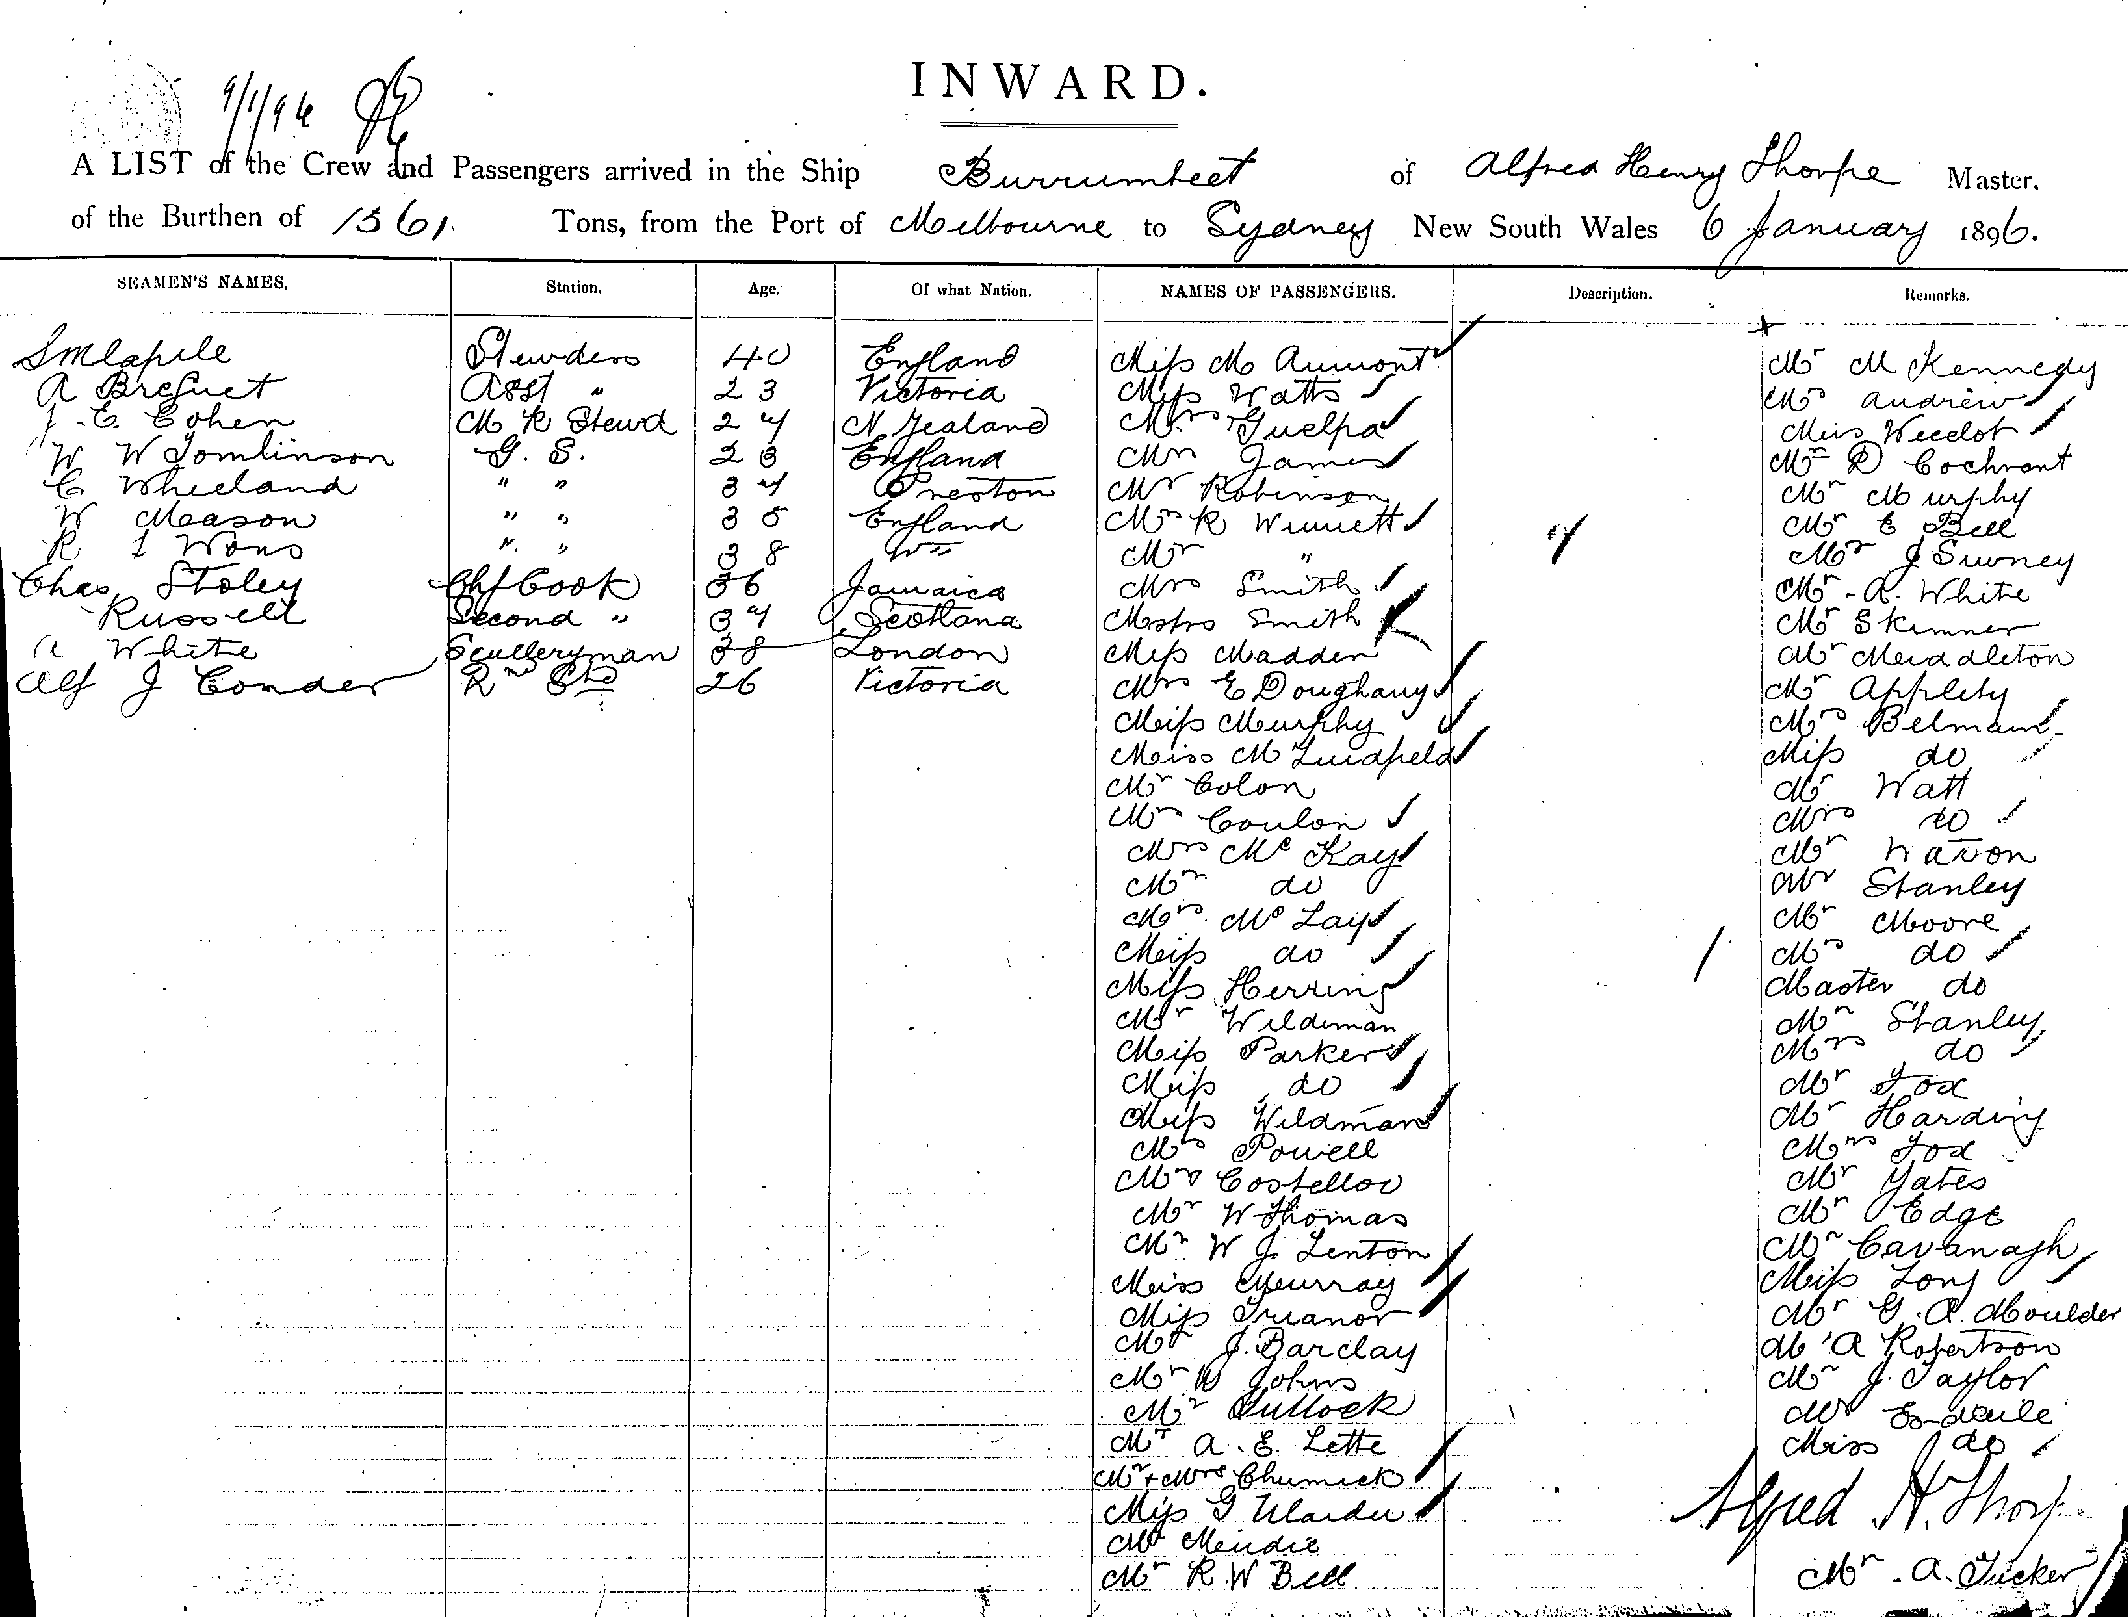 INWARD.
9/1/96
A LIST of the Crew and Passengers arrived in the Ship Burrumbeet of Alfred Henry Thorpe Master.
of the Burthen of 1361. Tons, from the Port of Melbourne to Sydney New South Wales 6 January 1896.
SEAMEN'S NAMES. Station. Age. Of what Nation. NAMES OF PASSENGERS. Description. Remarks.
Stewdess 40 England Miss M Aumont Mr M Kennedy
A Asst " 23 Victoria Miss Watts Mrs Andrew
J. E. Cohen M R Stewd 24 N Zealand Mrs Guelpa Miss
W W Tomlinson G. S. 23 England Mrs James Mr D Cochrant
C Wheeland " " 34 Preston Mr Robinson Mr Murphy
W Meason " " 35 England Mr R Mr E Bell
R " " 38 Mr " Mr J Suvney
Chas Stoley Chf Cook 36 Jamaica Mrs Smith Mr. A. White
Russell Second " 34 Scotland Mstrs Smith Mr Skinner
A White Sculleryman 38 London Miss Madden Mr Meiddleton
Alf J Conder 26 Victoria Mrs E Doughany Mr Appleby
Miss Murphy Mrs Belmain
Meiss M Luidfeld Miss do
Mr Colon Mr Watt
Mrs Coulon Mrs do
Mrs Mc Kay Mr Watson
Mr do Mr Stanley
Mrs Mc Lay Mr Moore
Miss do Mrs do
Miss Herring Master do
Mr Wildman Mr Stanley
Miss Parker Mrs do
Miss do Mr Fox
Miss Wildman Mr Harding
Mrs Powell Mrs Fox
Mrs Costelloe Mr Yates
Mr W Thomas Mr Edge
Mr W J Lenton Mr Cavanagh
Meiss Murray Miss Long
Miss Trianor Mr G. A. Moulder
Mr J. Barclay Mr A Robertson
Mr W Johns Mr J. Taylor
Mr Mr Esdaile
Mr A. E. Lette Miss do
Mr + Mrs Chumick
Miss G Alfred H. Thorp
Mr Meudie
Mr R. W Bell Mr. A. Tucker